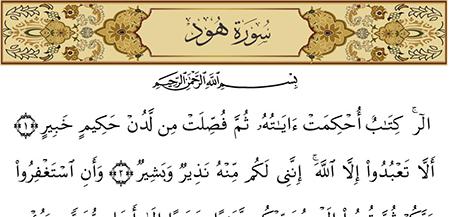 سُورَةُ هُودٍ
بِسْمِ اللَّهِ الرَّحْمَٰنِ الرَّحِيمِ
الٓرۚ كِتَٰبٌ أُحْكِمَتْ ءَايَٰتُهُۥ ثُمَّ فُصِّلَتْ مِن لَّدُنْ حَكِيمٍ خَبِيرٍ ﴿١﴾
أَلَّا تَعْبُدُوٓا۟ إِلَّا ٱللَّهَۚ إِنَّنِى لَكُم مِّنْهُ نَذِيرٌ وَبَشِيرٌ ﴿٢﴾ وَأَنِ ٱسْتَغْفِرُوا۟